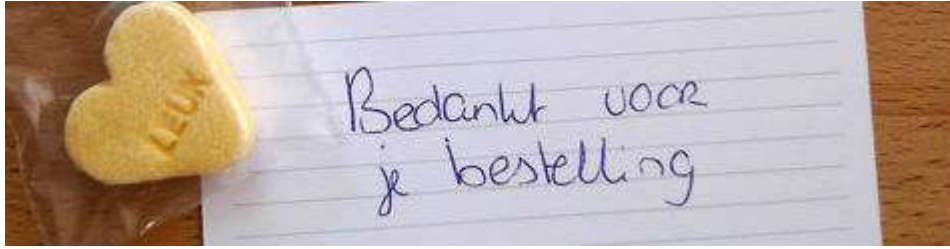 LEUK
Bedankt voor
je bestelling